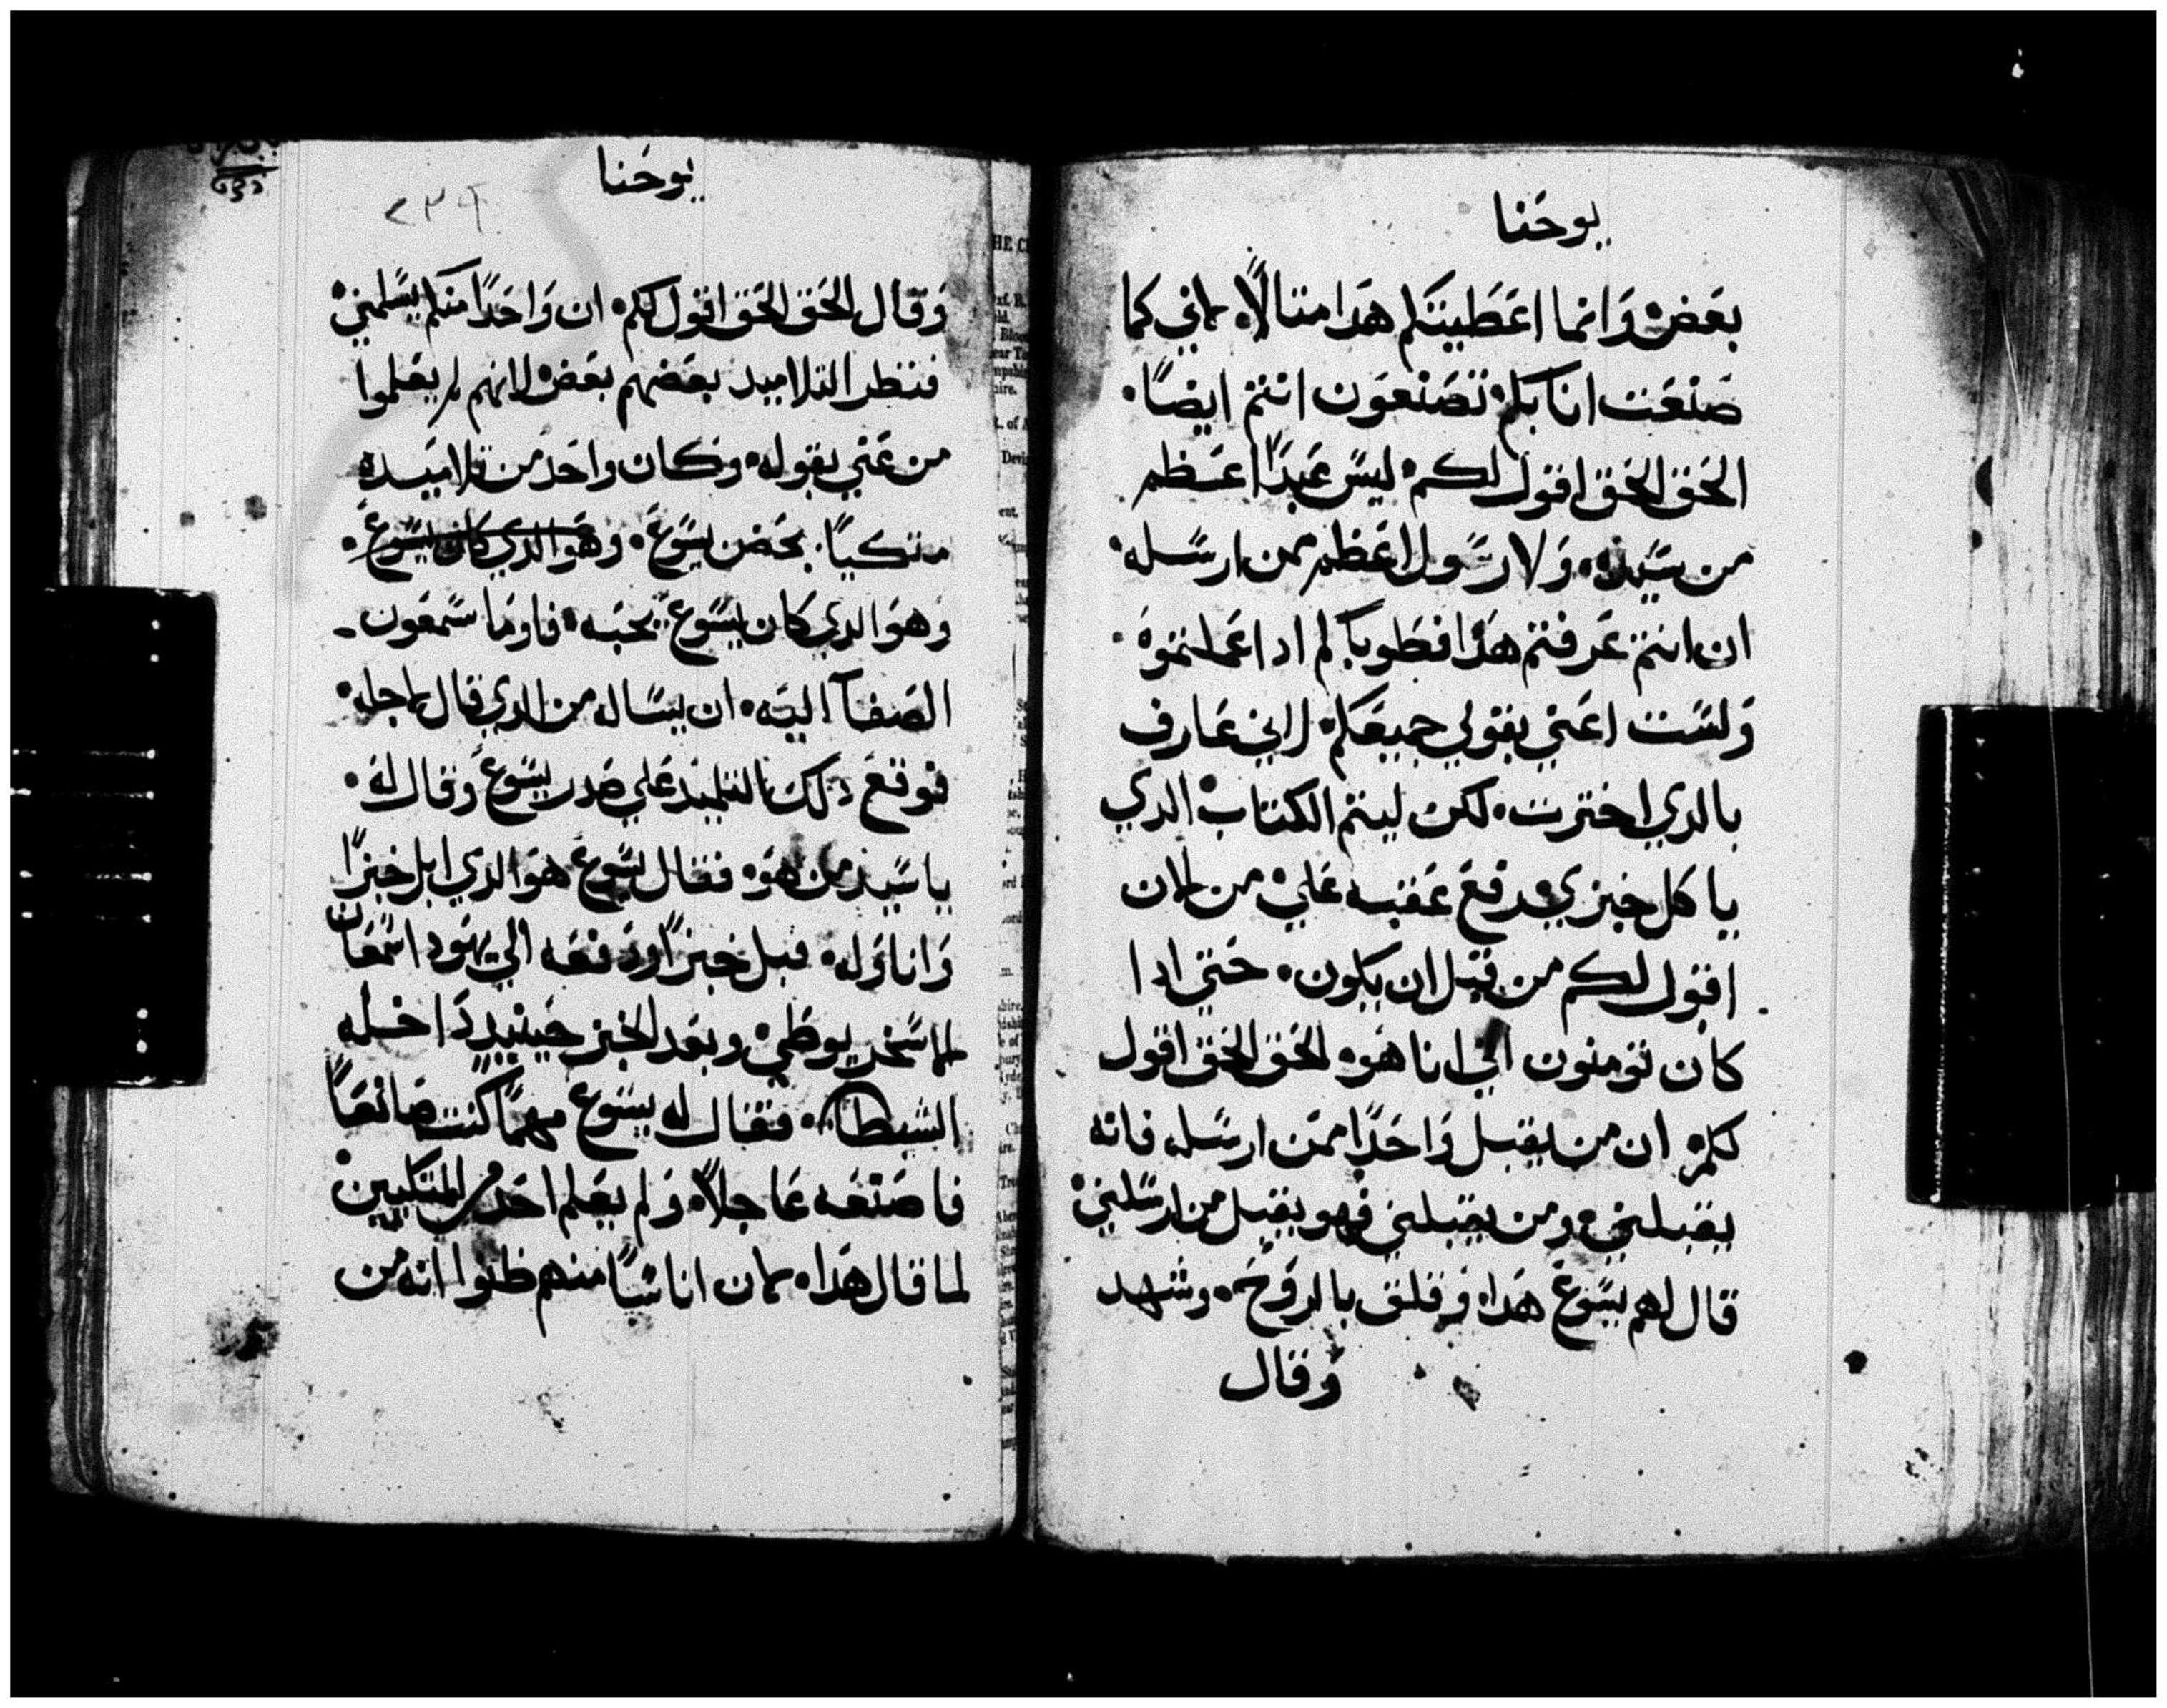 يوحنا
بعض وانما اعطيتكم هدا متالًا. لاني كما
صنعت انا بكم تصنعون انتم ايضًا.
الحق الحق اقول لكم ليس عبدًا اعظم
من سيده. ولا رسول اعظم ممن ارسله.
ان انتم عرفتم هدا فطوباكم ادا عملتموه.
ولست اعني بقولي جميعكم لاني عارف
بالدي اخترت. لكن ليتم الكتاب الدي
ياكل خبزي رفع عقبه علي من الان
اقول لكم من قبل ان يكون. حتي ادا
كان تومنون اني انا هو. الحق الحق اقول
لكم ان من يقبل واحدًا ممن ارسله فانه
يقبلني ومن يقبلني فهو يقبل من ارسلني
قال لهم يسوع هدا. وقلق بالروح. وشهد
وقال
يوحنا
٢٣٩
وقال الحق الحق اقول لكم. ان واحدًا منكم يسلمني
فنظر التلاميد بعضهم بعض لانهم لم يعلموا
من عني بقوله. وكان واحد من تلاميده
متكيًا. بحضن يسوع. وهو الدي كان يسوع.
وهو الدي كان يسوع يحبه. فاوما سمعون
الصفا اليه. ان يساله من الدي قال لاجله.
فوقع دلك التلميد علي صدر يسوع وقال له.
ياسيد من هو. فقال يسوع هو الدي ابل خبزًا
واناوله. فبل خبزًا ودفعه الي يهودا سمعان
الاسخريوطي وبعد الخبز حينيد داخله
الشيطان. فقال له يسوع مهما كنت صانعًا
فاصنعه عاجلًا. ولم يعلم احد من المتكيين
لما قال هدا. لان اناسًا منهم ظنوا انه من